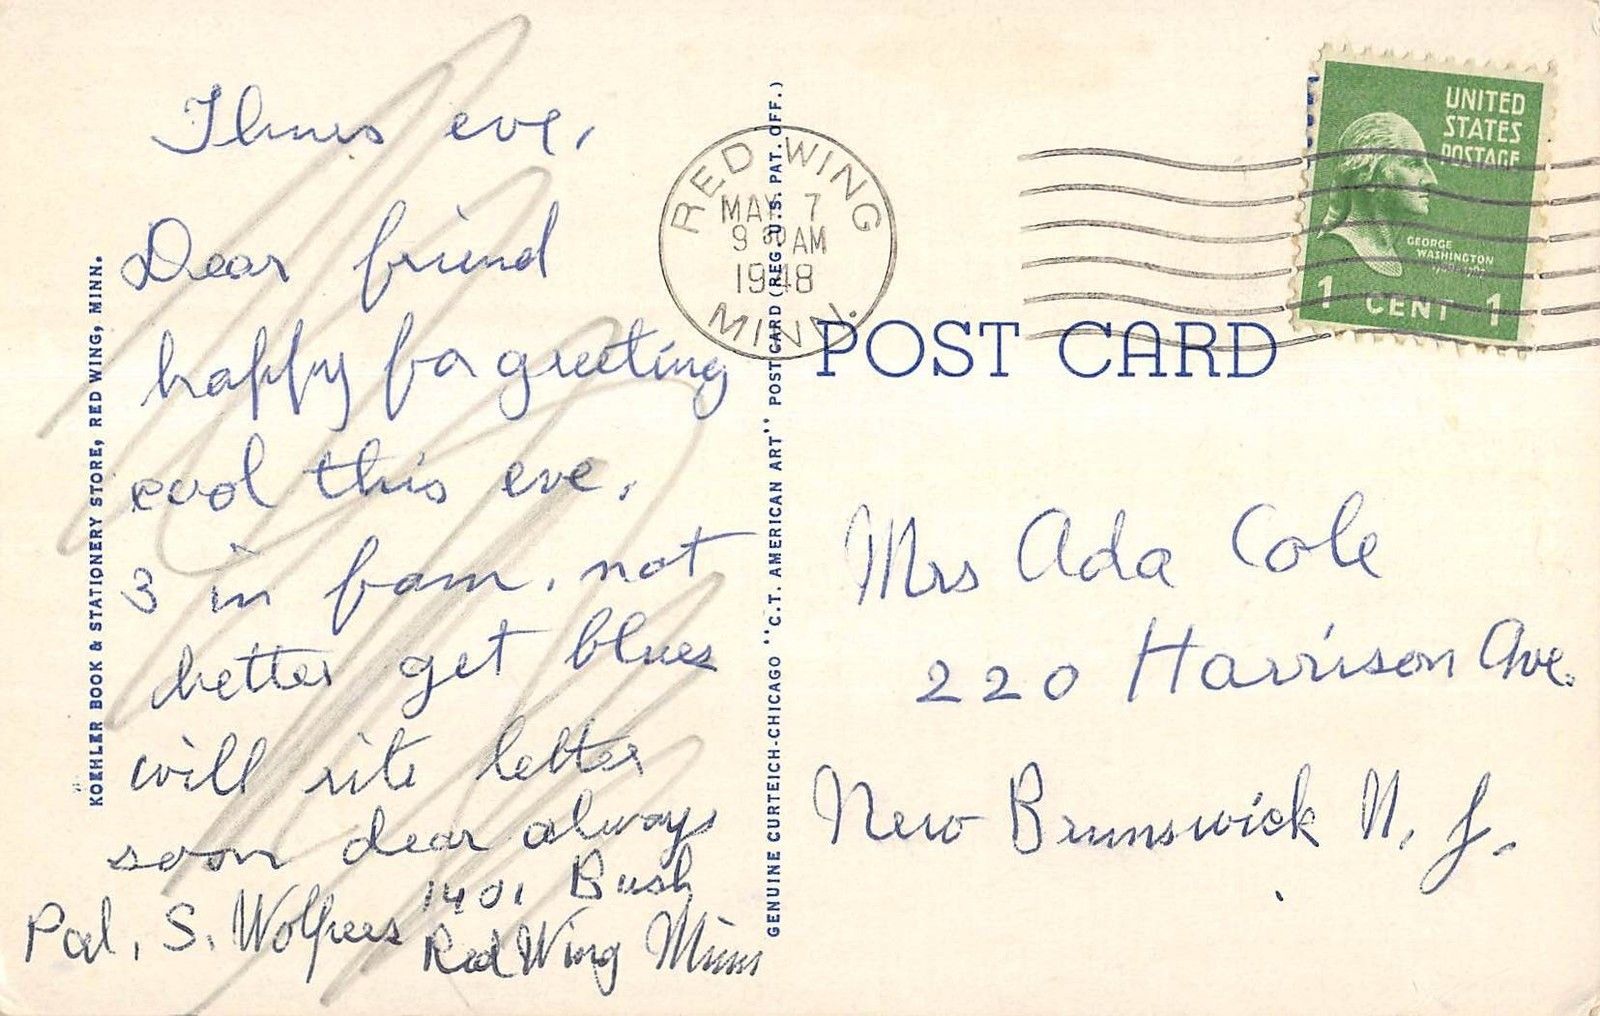 Thurs eve,
Dear friend
happy for greeting
cool this eve.
3 in fam. not
better get blues
will rite letter
soon dear always
Pal, S.
1401 Bush
Red Wing Minn
KOEHLER BOOK & STATIONERY STORE, RED WING, MINN.
GENUINE CURTEICH-CHICAGO "C.T. AMERICAN ART" POST CARD (REG. U.S. PAT. OFF.)
RED WING
MAY 7
9 30 AM
1948
MINN.
UNITED
STATES
POSTAGE
GEORGE
WASHINGTON
1 CENT 1
POST CARD
Mrs Ada Cole
220 Harrison Ave.
New Brunswick N. J.